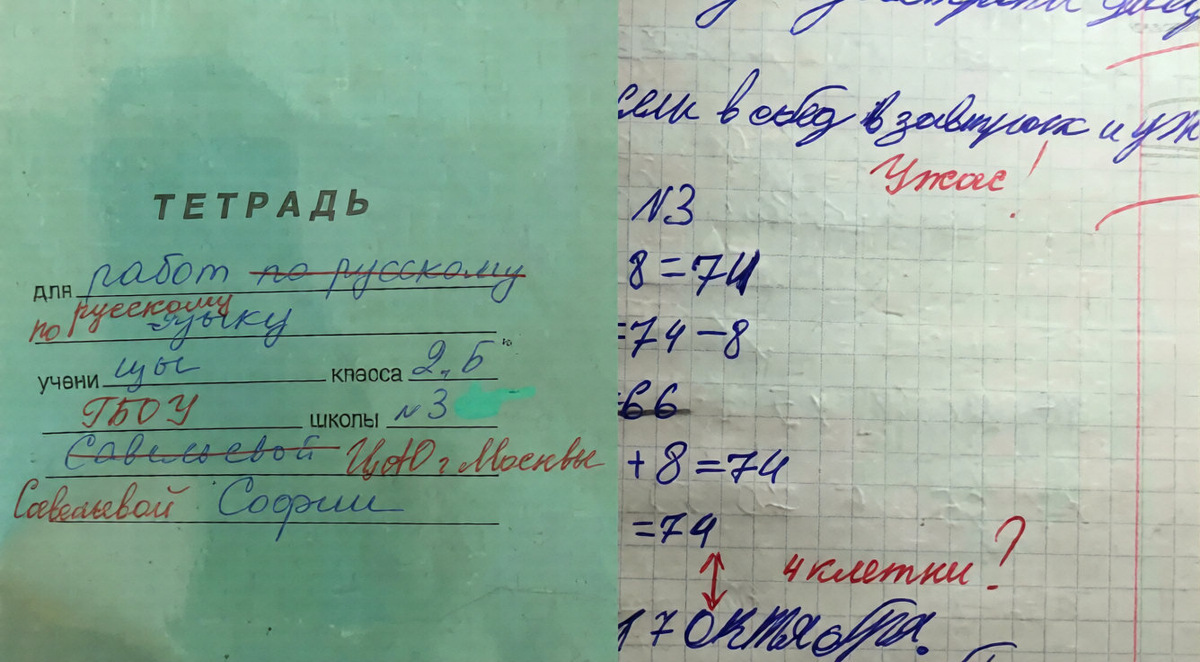 ТЕТРАДЬ
для работ по русскому
по русскому
языку
учени цы класса 2 „Б“
ГБОУ школы №3
Савельевой ЦАО г Москвы
Савельевой Софии
в обед в завтрак и уж
Ужас!
№3
8=74
=74-8
=66
+8=74
=74
4 клетки?
17 октября.